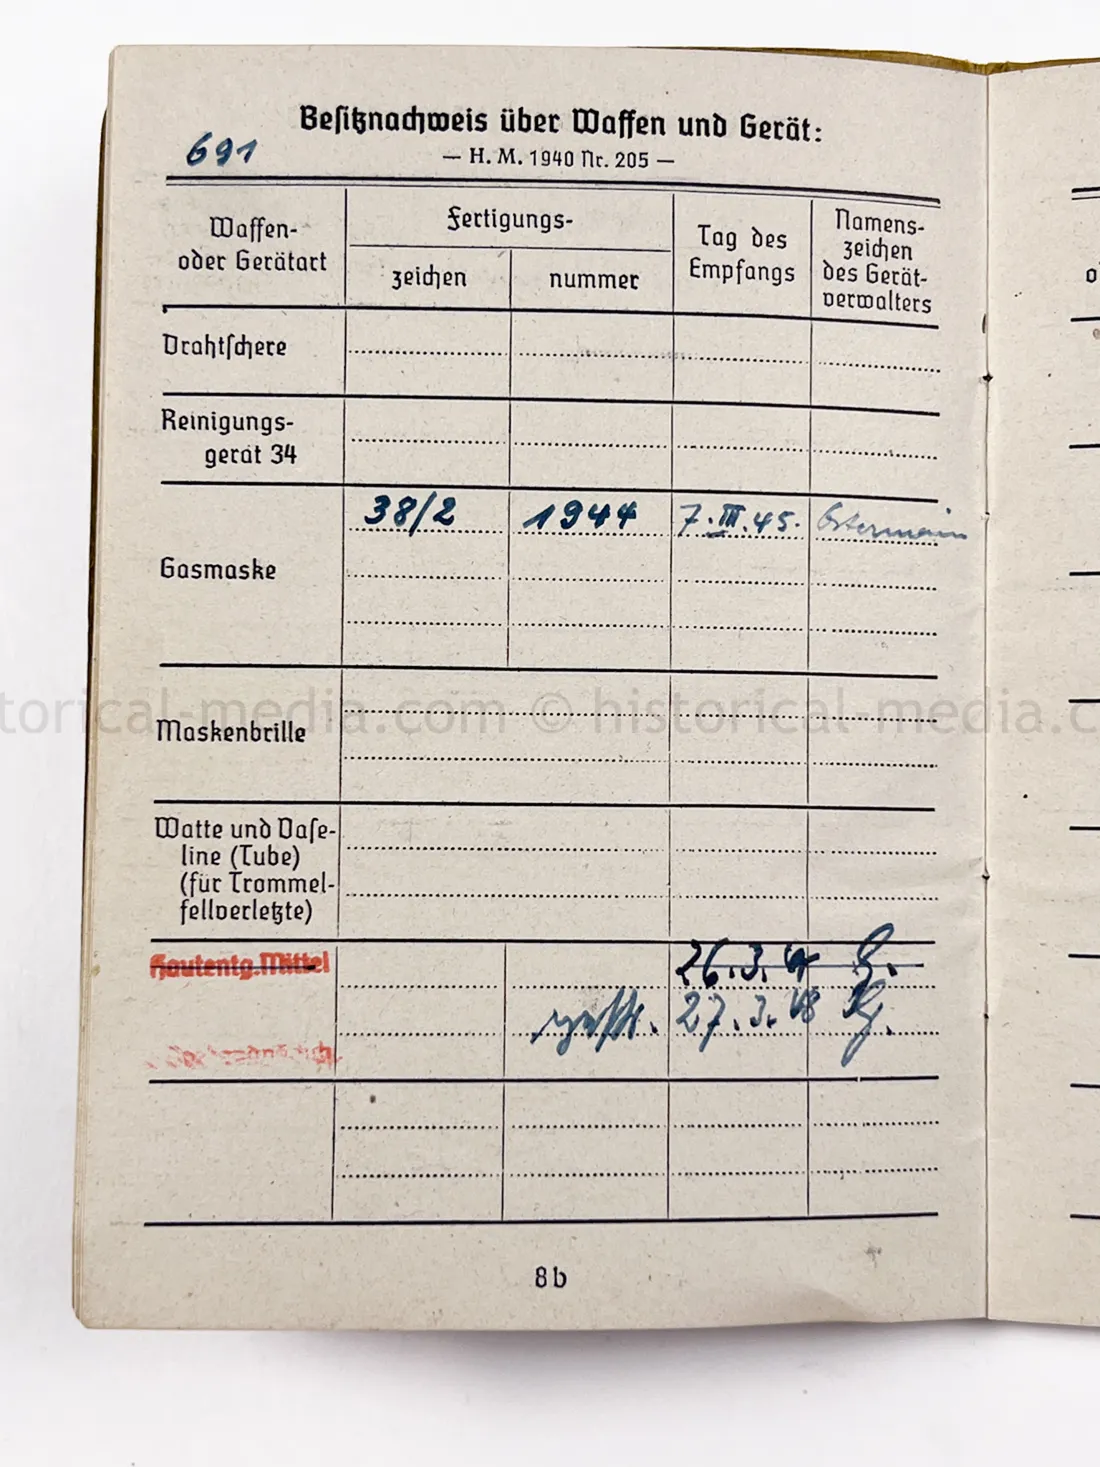 Besitznachweis über Waffen und Gerät:
691
— H. M. 1940 Nr. 205 —
Waffen-
oder Gerätart
Fertigungs-
zeichen
nummer
Tag des
Empfangs
Namens-
zeichen
des Gerät-
verwalters
Drahtschere
Reinigungs-
gerät 34
Gasmaske
38/2 1944 7.III.45.
Maskenbrille
Watte und Vase-
line (Tube)
(für Trommel-
fellverletzte)
Hautentg. Mittel
26.3.
27.3.
8b
historical-media.com © historical-media.c